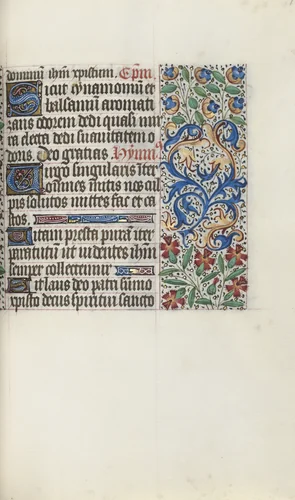 dominum ihm xpistum. Epm̄
Sicut cynamomū et
balsamū aromati
zans odorem dedi quasi mir
ra electa dedi suavitatem o
doris Deo gratias Hymn̄
Virgo singularis iter
omnes mitis nos cul
pis solutos mittes fac et ca
stos.
Vitam presta purā iter
para tutū ut videntes ihm
semper colletemur
Sit laus deo patri sūmo
xpisto decus spiritui sancto